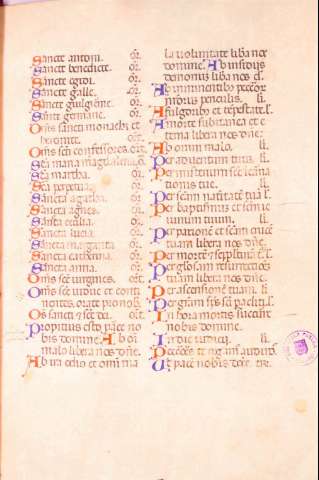 Sancte antoni. or.
Sancte benedicte. or.
Sancte egidi. or.
Sancte galle. or.
Sancte guilglme. or.
Sancte germane. or.
Oms sancti monachi et
heremite. orate
Oms sch confessores. orate
Sca maria magdalena. o.
Sca martha. or.
Sca perpetua. or.
Sancta agatha. or.
Sancta agnes. or.
Sancta cecilia. or.
Sancta lucia. or.
Sancta margarita or.
Sancta catherina. or.
Sancta anna. or.
Oms sce virgines. orate
Oms sce vidue et conti
nentes. orate pro nob.
Os sancti et sce dei. or.
Propitius esto parce no
bis domine. Ab oi
malo libera nos dne.
Ab ira odio et omi ma
la voluntate libera nos
domine. Ab insidiis
demonum libera nos d.
Ab iminentibus peccor
nrorum periculis. li.
A fulgoribus et tepestate. li.
A morte subitanea et e
terna libera nos dne.
Ab omni malo. li.
Per adventum tuum. li.
Per misterium sce icarna
tionis tue. li.
Per scam nativitate tua. li.
Per baptismum et scm ie
iunium tuum. li.
Per passione et scam cruce
tuam libera nos dne.
Per morte et sepultura. li.
Per gliosam resurrectione
tuam libera nos dne.
Per ascensione tuam. li.
Per gram sps sci pacliti. li.
In hora mortis succurre
nobis domine.
In die iudicii. li.
Peccores te rogam. audi nos.
Ut pace nobis dones.